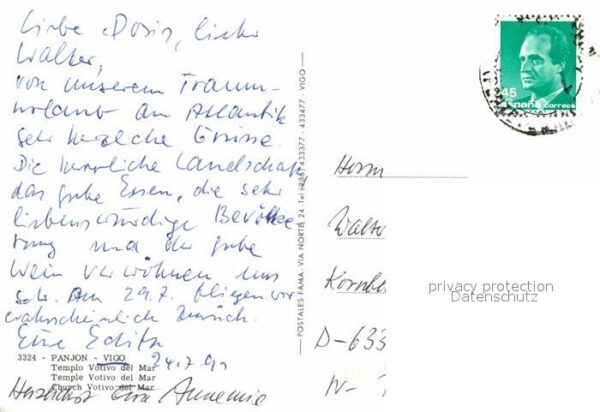 Liebe Doris, lieber
Walter,
von unserem Traum-
urlaub am Atlantik
sehr herzliche Grüsse.
Die herrliche Landschaft,
das gute Essen, die sehr
liebenswürdige Bevölke
rung und der gute
Wein verwöhnen uns
sehr. Am 29.7. fliegen wir
wahrscheinlich zurück.
Eure Edith
24.7.90
3324 - PANJON - VIGO
Templo Votivo del Mar
Temple Votivo del Mar
Church Votivo del Mar
Herzlichst Eure Annemie
POSTALES FAMA VIA NORTE, 24 Tel. (986) 433377 - 433477 - VIGO
45
España correos
Herrn
Walter
Kornbe
D-633
W-
privacy protection
Datenschutz